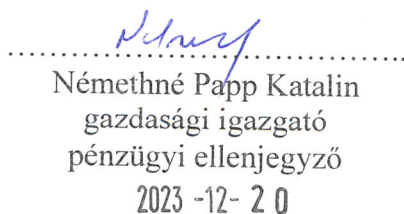 Némethné Papp Katalin
gazdasági igazgató
pénzügyi ellenjegyző
2023 -12- 20